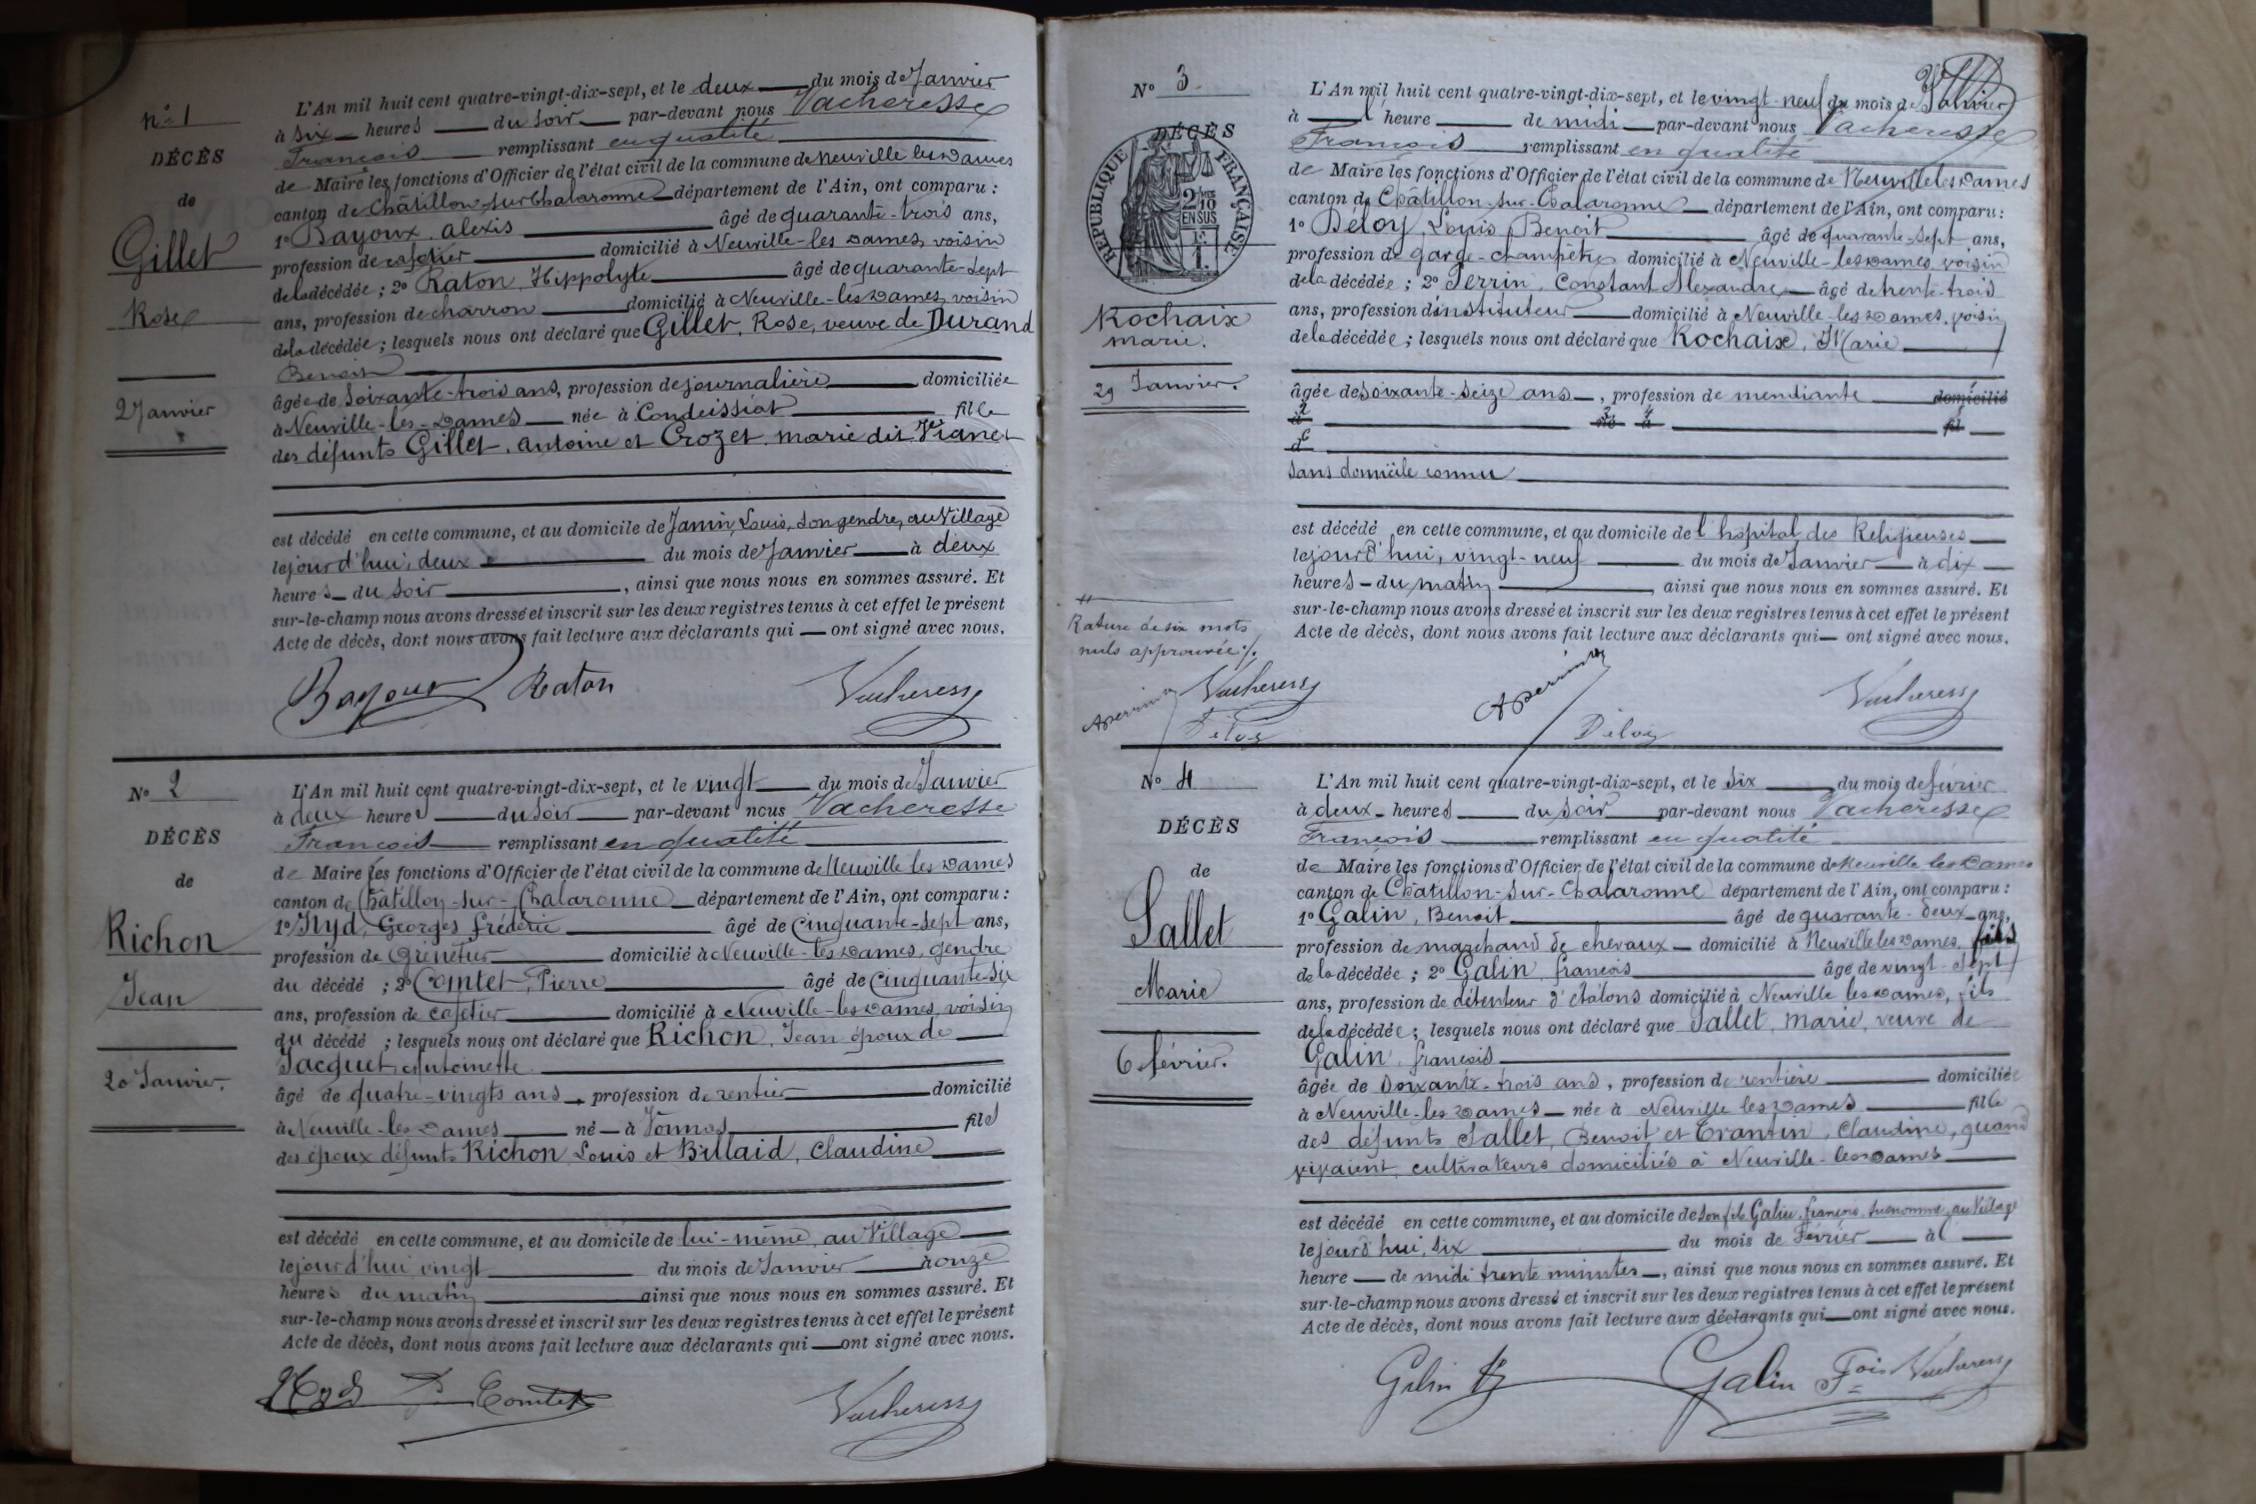 n° 1
DÉCÈS
de
Gillet
Rose
2 Janvier
L'An mil huit cent quatre-vingt-dix-sept, et le deux du mois de Janvier
à six heures du soir par-devant nous Vacheresse
François remplissant en qualité
de Maire les fonctions d'Officier de l'état civil de la commune de Neuville les Dames
canton de Châtillon-sur-Chalaronne département de l'Ain, ont comparu :
1° Bayoux, alexis âgé de quarante-trois ans,
profession de cafetier domicilié à Neuville-les Dames, voisin
de la décédée ; 2° Raton, Hippolyte âgé de quarante-sept
ans, profession de charron domicilié à Neuville-les-Dames, voisin
de la décédée ; lesquels nous ont déclaré que Gillet, Rose, veuve de Durand
Benoit
âgée de soixante-trois ans, profession de journalière domiciliée
à Neuville-les-Dames née à Condeissiat fille
des défunts Gillet, antoine et Crozet, marie dit Vianet
est décédé en cette commune, et au domicile de Janin, Louis, son gendre, au Village
le jourd'hui, deux du mois de Janvier à deux
heures du soir, ainsi que nous nous en sommes assuré. Et
sur-le-champ nous avons dressé et inscrit sur les deux registres tenus à cet effet le présent
Acte de décès, dont nous avons fait lecture aux déclarants qui ont signé avec nous.
Bayoux Raton Vacheresse
N° 2
DÉCÈS
de
Richon
Jean
20 Janvier.
L'An mil huit cent quatre-vingt-dix-sept, et le vingt du mois de Janvier
à deux heures du soir par-devant nous Vacheresse
François remplissant en qualité
de Maire les fonctions d'Officier de l'état civil de la commune de Neuville les Dames
canton de Châtillon-sur-Chalaronne département de l'Ain, ont comparu :
1° Hyd, Georges frédéric âgé de Cinquante-sept ans,
profession de Grènetier domicilié à Neuville-les-Dames, gendre
du décédé ; 2° Comtet, Pierre âgé de Cinquante-six
ans, profession de cafetier domicilié à Neuville-les-Dames, voisin
du décédé ; lesquels nous ont déclaré que Richon, Jean époux de
Jacquet, Antoinette
âgé de quatre-vingts ans, profession de rentier domicilié
à Neuville-les-Dames né à fils
des époux défunts Richon Louis et Billaid, Claudine
est décédé en cette commune, et au domicile de lui-même, au Village
le jourd'hui vingt du mois de Janvier à onze
heures du matin ainsi que nous nous en sommes assuré. Et
sur-le-champ nous avons dressé et inscrit sur les deux registres tenus à cet effet le présent
Acte de décès, dont nous avons fait lecture aux déclarants qui ont signé avec nous.
Hyd Comtet Vacheresse
N° 3
DÉCÈS
RÉPUBLIQUE FRANÇAISE
2/10
EN SUS
Rochaix
marie.
29 Janvier.
L'An mil huit cent quatre-vingt-dix-sept, et le vingt-neuf du mois de Janvier
à l heure de midi par-devant nous Vacheresse
François remplissant en qualité
de Maire les fonctions d'Officier de l'état civil de la commune de Neuville les Dames
canton de Châtillon-sur-Chalaronne département de l'Ain, ont comparu :
1° Déloy, Louis Benoit âgé de quarante-sept ans,
profession de garde-champêtre domicilié à Neuville-les Dames, voisin
de la décédée ; 2° Perrin, Constant Alexandre âgé de trente-trois
ans, profession d'instituteur domicilié à Neuville-les Dames, voisin
de la décédée ; lesquels nous ont déclaré que Rochaix, Marie
âgée de soixante-seize ans, profession de mendiante domicilié
à né à fil
d
sans domicile connu
est décédé en cette commune, et au domicile de l'hôpital des Religieuses
le jourd'hui, vingt-neuf du mois de Janvier à dix
heures du matin, ainsi que nous nous en sommes assuré. Et
sur-le-champ nous avons dressé et inscrit sur les deux registres tenus à cet effet le présent
Acte de décès, dont nous avons fait lecture aux déclarants qui ont signé avec nous.
Rature de six mots
nuls approuvée
APerrin Vacheresse
Déloy
APerrin Déloy Vacheresse
N° 4
DÉCÈS
de
Sallet
Marie
6 février.
L'An mil huit cent quatre-vingt-dix-sept, et le six du mois de février
à deux heures du soir par-devant nous Vacheresse
François remplissant en qualité
de Maire les fonctions d'Officier de l'état civil de la commune de Neuville les Dames
canton de Châtillon-sur-Chalaronne département de l'Ain, ont comparu :
1° Galin, Benoit âgé de quarante-deux ans,
profession de marchand de chevaux domicilié à Neuville les Dames, fils
de la décédée ; 2° Galin, françois âgé de vingt-sept
ans, profession de détenteur d'étalons domicilié à Neuville les Dames, fils
de la décédée ; lesquels nous ont déclaré que Sallet, marie, veuve de
Galin, françois
âgée de soixante-trois ans, profession de rentière domiciliée
à Neuville-les Dames née à Neuville les Dames fille
des défunts Sallet, Benoit et Trantin, Claudine, quand
vivaient, cultivateurs domiciliés à Neuville-les Dames
est décédé en cette commune, et au domicile de son fils Galin, françois, susnommé, au Village
le jourd'hui, six du mois de Février à l
heure de midi trente minutes, ainsi que nous nous en sommes assuré. Et
sur-le-champ nous avons dressé et inscrit sur les deux registres tenus à cet effet le présent
Acte de décès, dont nous avons fait lecture aux déclarants qui ont signé avec nous.
Galin Galin Fois Vacheresse